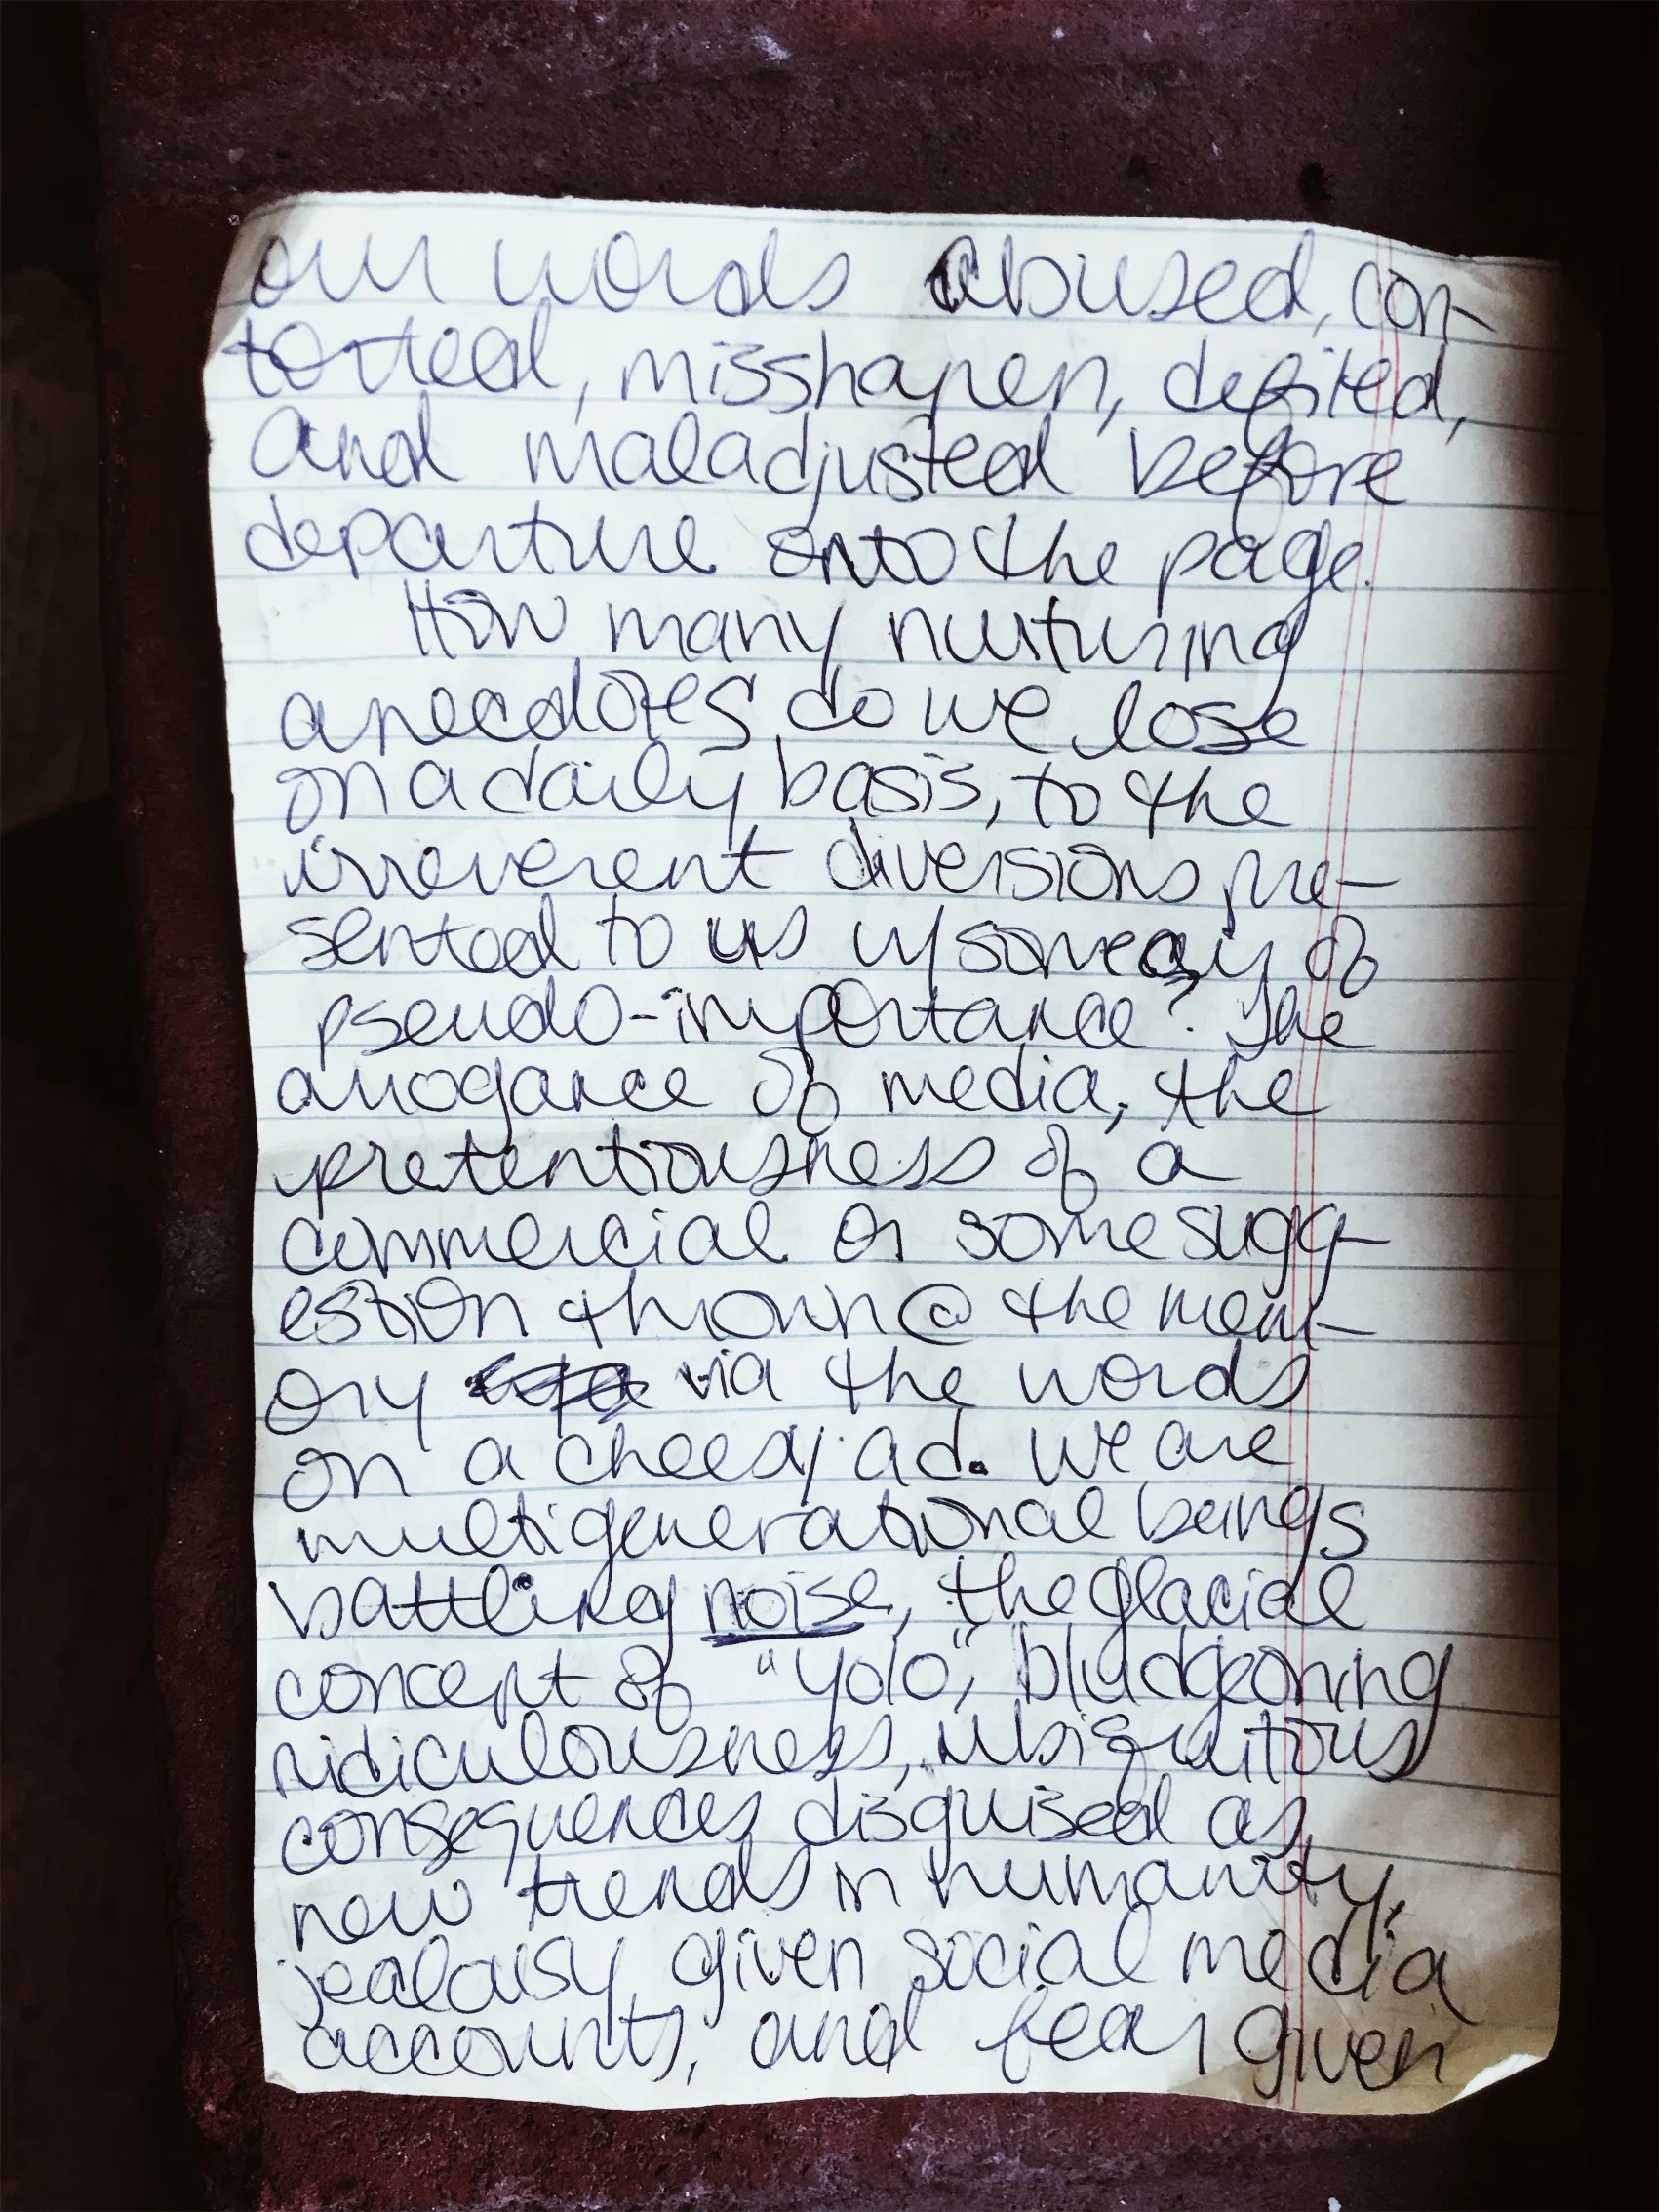 our words abused, con-
torted, misshapen, defited,
and maladjusted before
departure onto the page.
How many nurturing
anecdotes do we lose
on a daily basis, to the
irreverent diversions pre-
sented to us w/ some of
pseudo-importance? The
arrogance of media, the
pretentiousness of a
commercial or some sugg-
estion thrown @ the mem-
ory via the words
on a cheesy ad. We are
multigenerational beings
battling noise, the glacial
concept of "yolo", bludgeoning
ridiculousness, ubiquitous
consequences disguised as
new trends in humanity,
jealousy given social media
accounts, and fear given